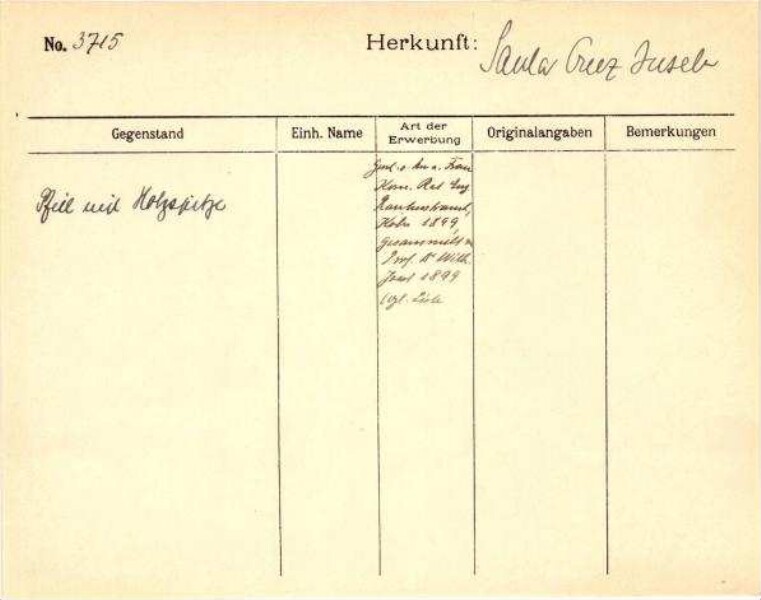 No. 3715
Herkunft: Santa Cruz Inseln
Gegenstand
Einh. Name
Art der Erwerbung
Originalangaben
Bemerkungen
Pfeil mit Holzspitze
Gesch. v. H. u. Frau
Kom. Rat Eug.
Rautenstrauch,
Köln 1899,
gesammelt v.
Prof. Dr Wilh.
Joest 1899
vgl. Liste